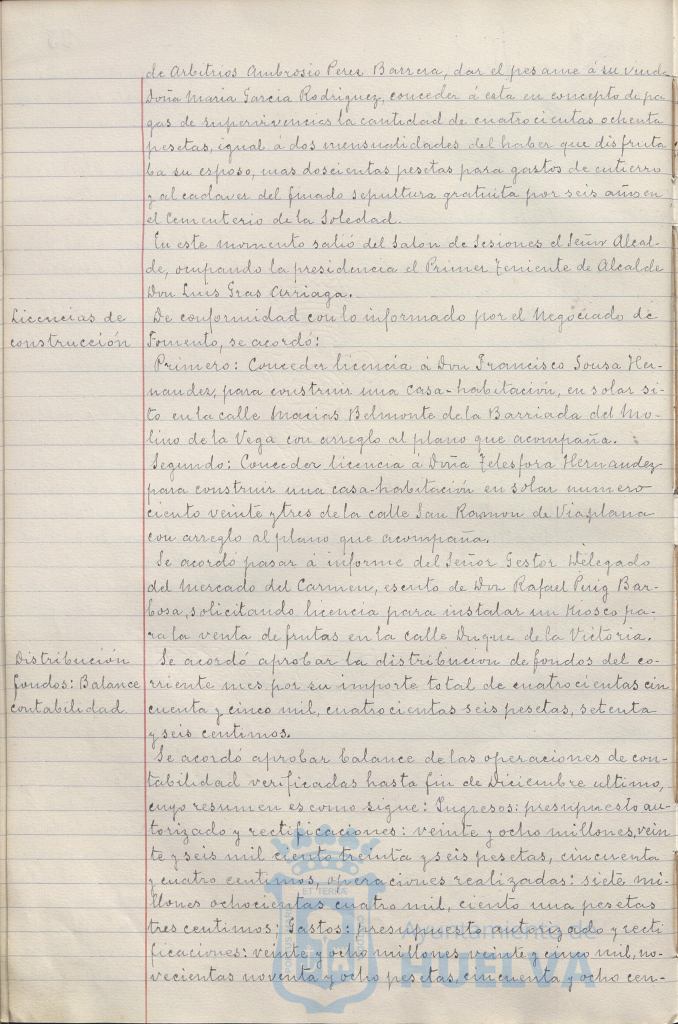 de Arbitrios Ambrosio Perez Barrera, dar el pesame á su viuda
Doña Maria Garcia Rodriguez, conceder á esta en concepto de pa-
gas de supervivencias la cantidad de cuatrocientas ochenta
pesetas, igual á dos mensualidades del haber que disfruta
ba su esposo, mas doscientas pesetas para gastos de entierro
y al cadaver del finado sepultura gratuita por seis años en
el Cementerio de la Soledad.
En este momento salió del Salon de Sesiones el Señor Alcal-
de, ocupando la presidencia el Primer Teniente de Alcalde
Don Luis Gras Arriaga.
Licencias de
construcción
De conformidad con lo informado por el Negociado de
Fomento, se acordó:
Primero: Conceder licencia á Don Francisco Sousa Her-
nandez, para construir una casa-habitación, en solar si-
to en la calle Macias Belmonte de la Barriada del Mo-
lino de la Vega con arreglo al plano que acompaña.
Segundo: Conceder licencia á Doña Telesfora Hernandez
para construir una casa-habitación en solar numero
ciento veinte y tres de la calle San Ramon de Viaplana
con arreglo al plano que acompaña.
Se acordó pasar á informe del Señor Gestor Delegado
del Mercado del Carmen, escrito de Don Rafael Puig Bar-
bosa, solicitando licencia para instalar un Kiosco pa-
ra la venta de frutas en la calle Duque de la Victoria.
Distribución
fondos: Balance
contabilidad
Se acordó aprobar la distribucion de fondos del co-
rriente mes por su importe total de cuatrocientas cin
cuenta y cinco mil, cuatrocientas seis pesetas, setenta
y seis centimos.
Se acordó aprobar balance de las operaciones de con-
tabilidad verificadas hasta fin de Diciembre ultimo,
cuyo resumen es como sigue: Ingresos: presupuesto au-
torizado y rectificaciones: veinte y ocho millones, vein
te y seis mil ciento treinta y seis pesetas, cincuenta
y cuatro centimos, operaciones realizadas: siete mi-
llones ochocientas cuatro mil, ciento una pesetas
tres centimos; Gastos: presupuesto autorizado y recti
ficaciones: veinte y ocho millones veinte y cinco mil, no-
vecientas noventa y ocho pesetas, cincuenta y ocho cen-
Ayuntamiento de
HUELVA